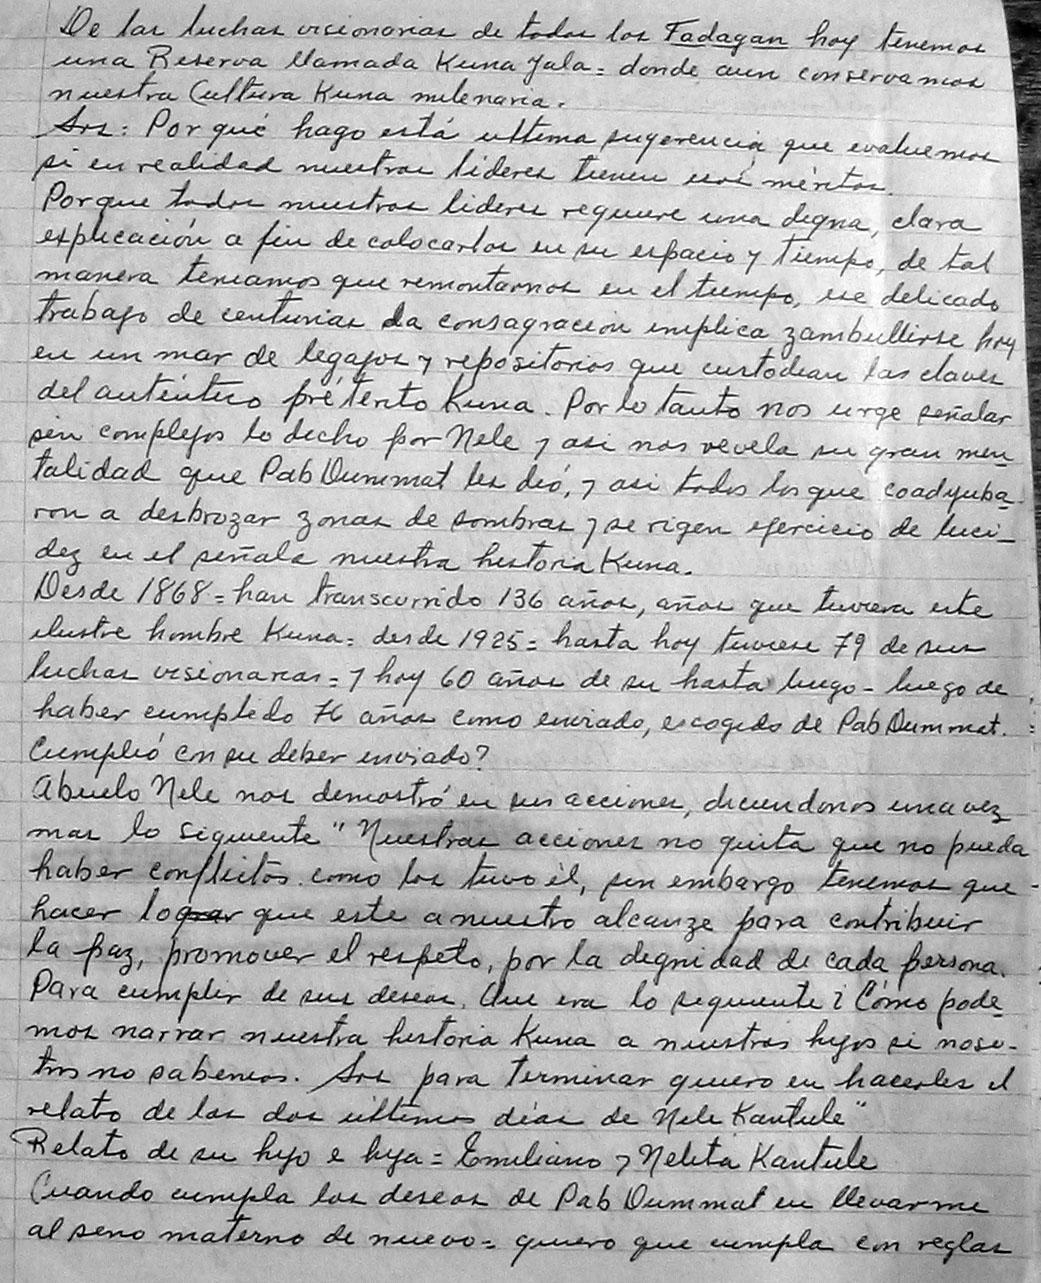 De las luchas visionarias de todos los Fadagan hoy tenemos
una Reserva llamada Kuna Yala = donde aun conservamos
nuestra Cultura Kuna milenaria.
Srs: Por qué hago está ultima sugerencia, que evaluemos
si en realidad nuestros líderes tienen esos méritos.
Porque todos nuestros lideres requiere una digna, clara
explicación a fin de colocarlos en su espacio y tiempo, de tal
manera teniamos que remontarnos en el tiempo, ese delicado
trabajo de centurias da consagración implica zambullirse hoy
en un mar de legajos y repositorios que custodian las claves
del auténtico pretérito Kuna. Por lo tanto nos urge señalar
sin complejos lo dicho por Nele y asi nos revela su gran men-
talidad que Pab Dummat les dió, y asi todos los que coadyuba-
ron a desbrozar zonas de sombras y se rigen ejercicio de luci-
dez en el señala nuestra historia Kuna.
Desde 1868 = han transcurrido 136 años, años que tuviera este
ilustre hombre Kuna = desde 1925 = hasta hoy tuviese 79 de sus
luchas visionarias = y hoy 60 años de su hasta luego - luego de
haber cumplido 76 años como enviado, escogido de Pab Dummat.
Cumplió con su deber enviado?
Abuelo Nele nos demostró en sus acciones, diciendonos una vez
mas lo siguiente "Nuestras acciones no quita que no pueda
haber conflictos como los tuvo él, sin embargo tenemos que
hacer lo que este a nuestro alcanze para contribuir
la paz, promover el respeto, por la dignidad de cada persona.
Para cumplir de sus deseos. Que era lo siguiente ¿Cómo pode-
mos narrar nuestra historia Kuna a nuestros hijos si noso-
tros no sabemos. Srs para terminar quiero en hacerles el
relato de los dos últimos días de Nele Kantule"
Relato de su hijo e hija = Emiliano y Nelita Kantule
Cuando cumpla los deseos de Pab Dummat en llevarme
al seno materno de nuevo = quiero que cumpla con reglas